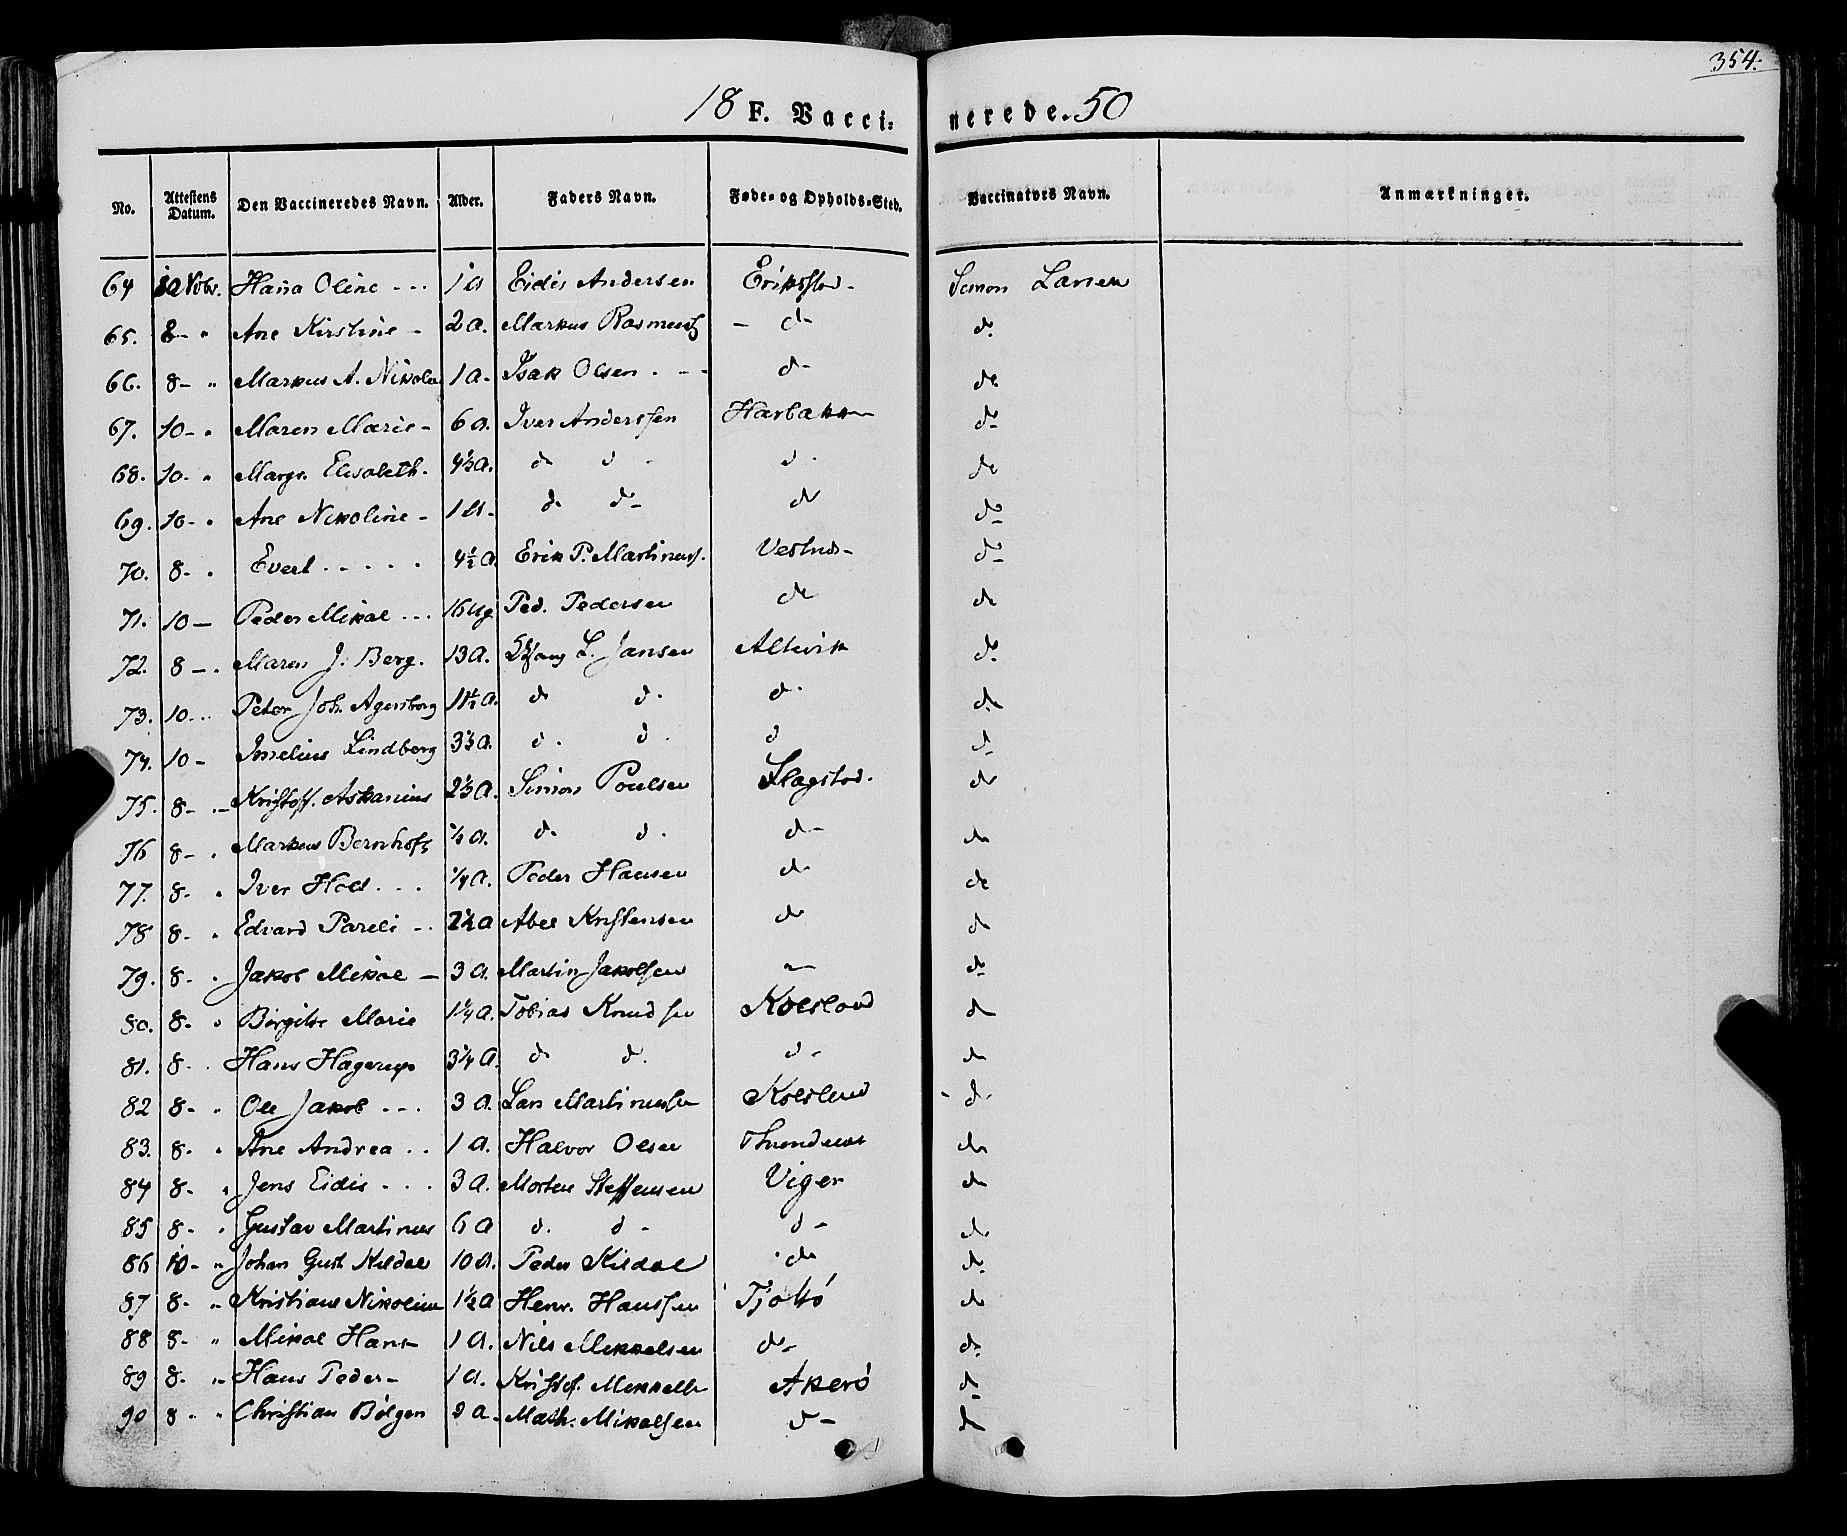 354.
18 F. Vacci: nerede. 50
No. Attestens Datum. Den Vaccineredes Navn. Alder. Faders Navn. Føde- og Opholds-Sted. Vaccinatørs Navn. Anmærkninger.
64 Novbr. Hana Oline - - - 1 a Eidis Andersen Simon Larsen
65. 8 - " Ane Kirstine - 2 a. Markus Rasmuss - do do
66. 8 - " Markus A. Nikolai 1 a - Isak Olsen . - - do do
67. 10 - " Maren Marie - 6 a. Iver Anderssen Harbakken do
68. 10 - " Margr. Elisabeth. 4½ a. do do do do
69. 10 - " Ane Nikoline - 1 a - do do do do
70. 8 - " Evert - - - - - 4½ a Erik P. Martinuss. do
71. 10 - Peder Mikal - - - 16 Ug Ped. Pedersen do do
72. 8 - " Maren J. Berg. 13 a. L. Jansen Altervik do
73. 10 - " Peter Joh. Agersborg 11½ a. do do do do
74. 10 - Lindberg 3½ a. do do do do
75. 8 - " Kristoff. Askanius 2½ a. Simon Poulsen Flagstad. do
76 8 - " Markus Bernhoft ½ a. do do do do
77. 8 - " Iver Hol - - - ¼ a. Peder Hansen do do
78 8 - " Edvard Pareli - - 2½ a Abel Kristensen do do
79. 8 - " Jakob Mikal - 3 a. Martin Jakobsen - do
80. 8 - " Birgitte Marie 1¼ a. Tobias Knudsen do
81. 8 - " Hans Hagerup 3¼ a. do do do do
82 8 - " Ole Jakob - - - 3 a. Lars Martinussen do
83. 8 - " Ane Andrea - - 1 a. Halvor Olsen do
84 8 - " Jens Eidis - - - 3 a. Morten Steffensen Viger do
85 8 - " Gustav Martinus 6 a do do do do
86 10 - " Johan Gust. Kildal 10 a. Peder Kildal do do
87 8 - " Kristiane Nikoline 1½ a Henr. Hanssen Tjøttø do
88 8 - " Mikal Hans - 1 a. Nils Mikkelsen do do
89 8 - " Hans Peder - 1 a. Kristof. Mikkels Akerø do
90 8 - " Christian Bølgen 9 a. Math. Mikalsen do do